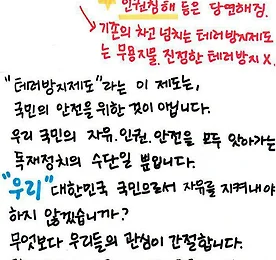 인권침해 등은 당연해짐.
→ 기존의 차고 넘치는 테러방지제도
는 무용지물. 진정한 테러방지 X.
"테러방지제도"라는 이 제도는,
국민의 안전을 위한 것이 아닙니다.
우리 국민의 자유.인권.안전을 모두 앗아가는
독재정치의 수단일 뿐입니다.
"우리" 대한민국 국민으로서 자유를 지켜내야
하지 않겠습니까?
무엇보다 우리들의 관심이 간절합니다.